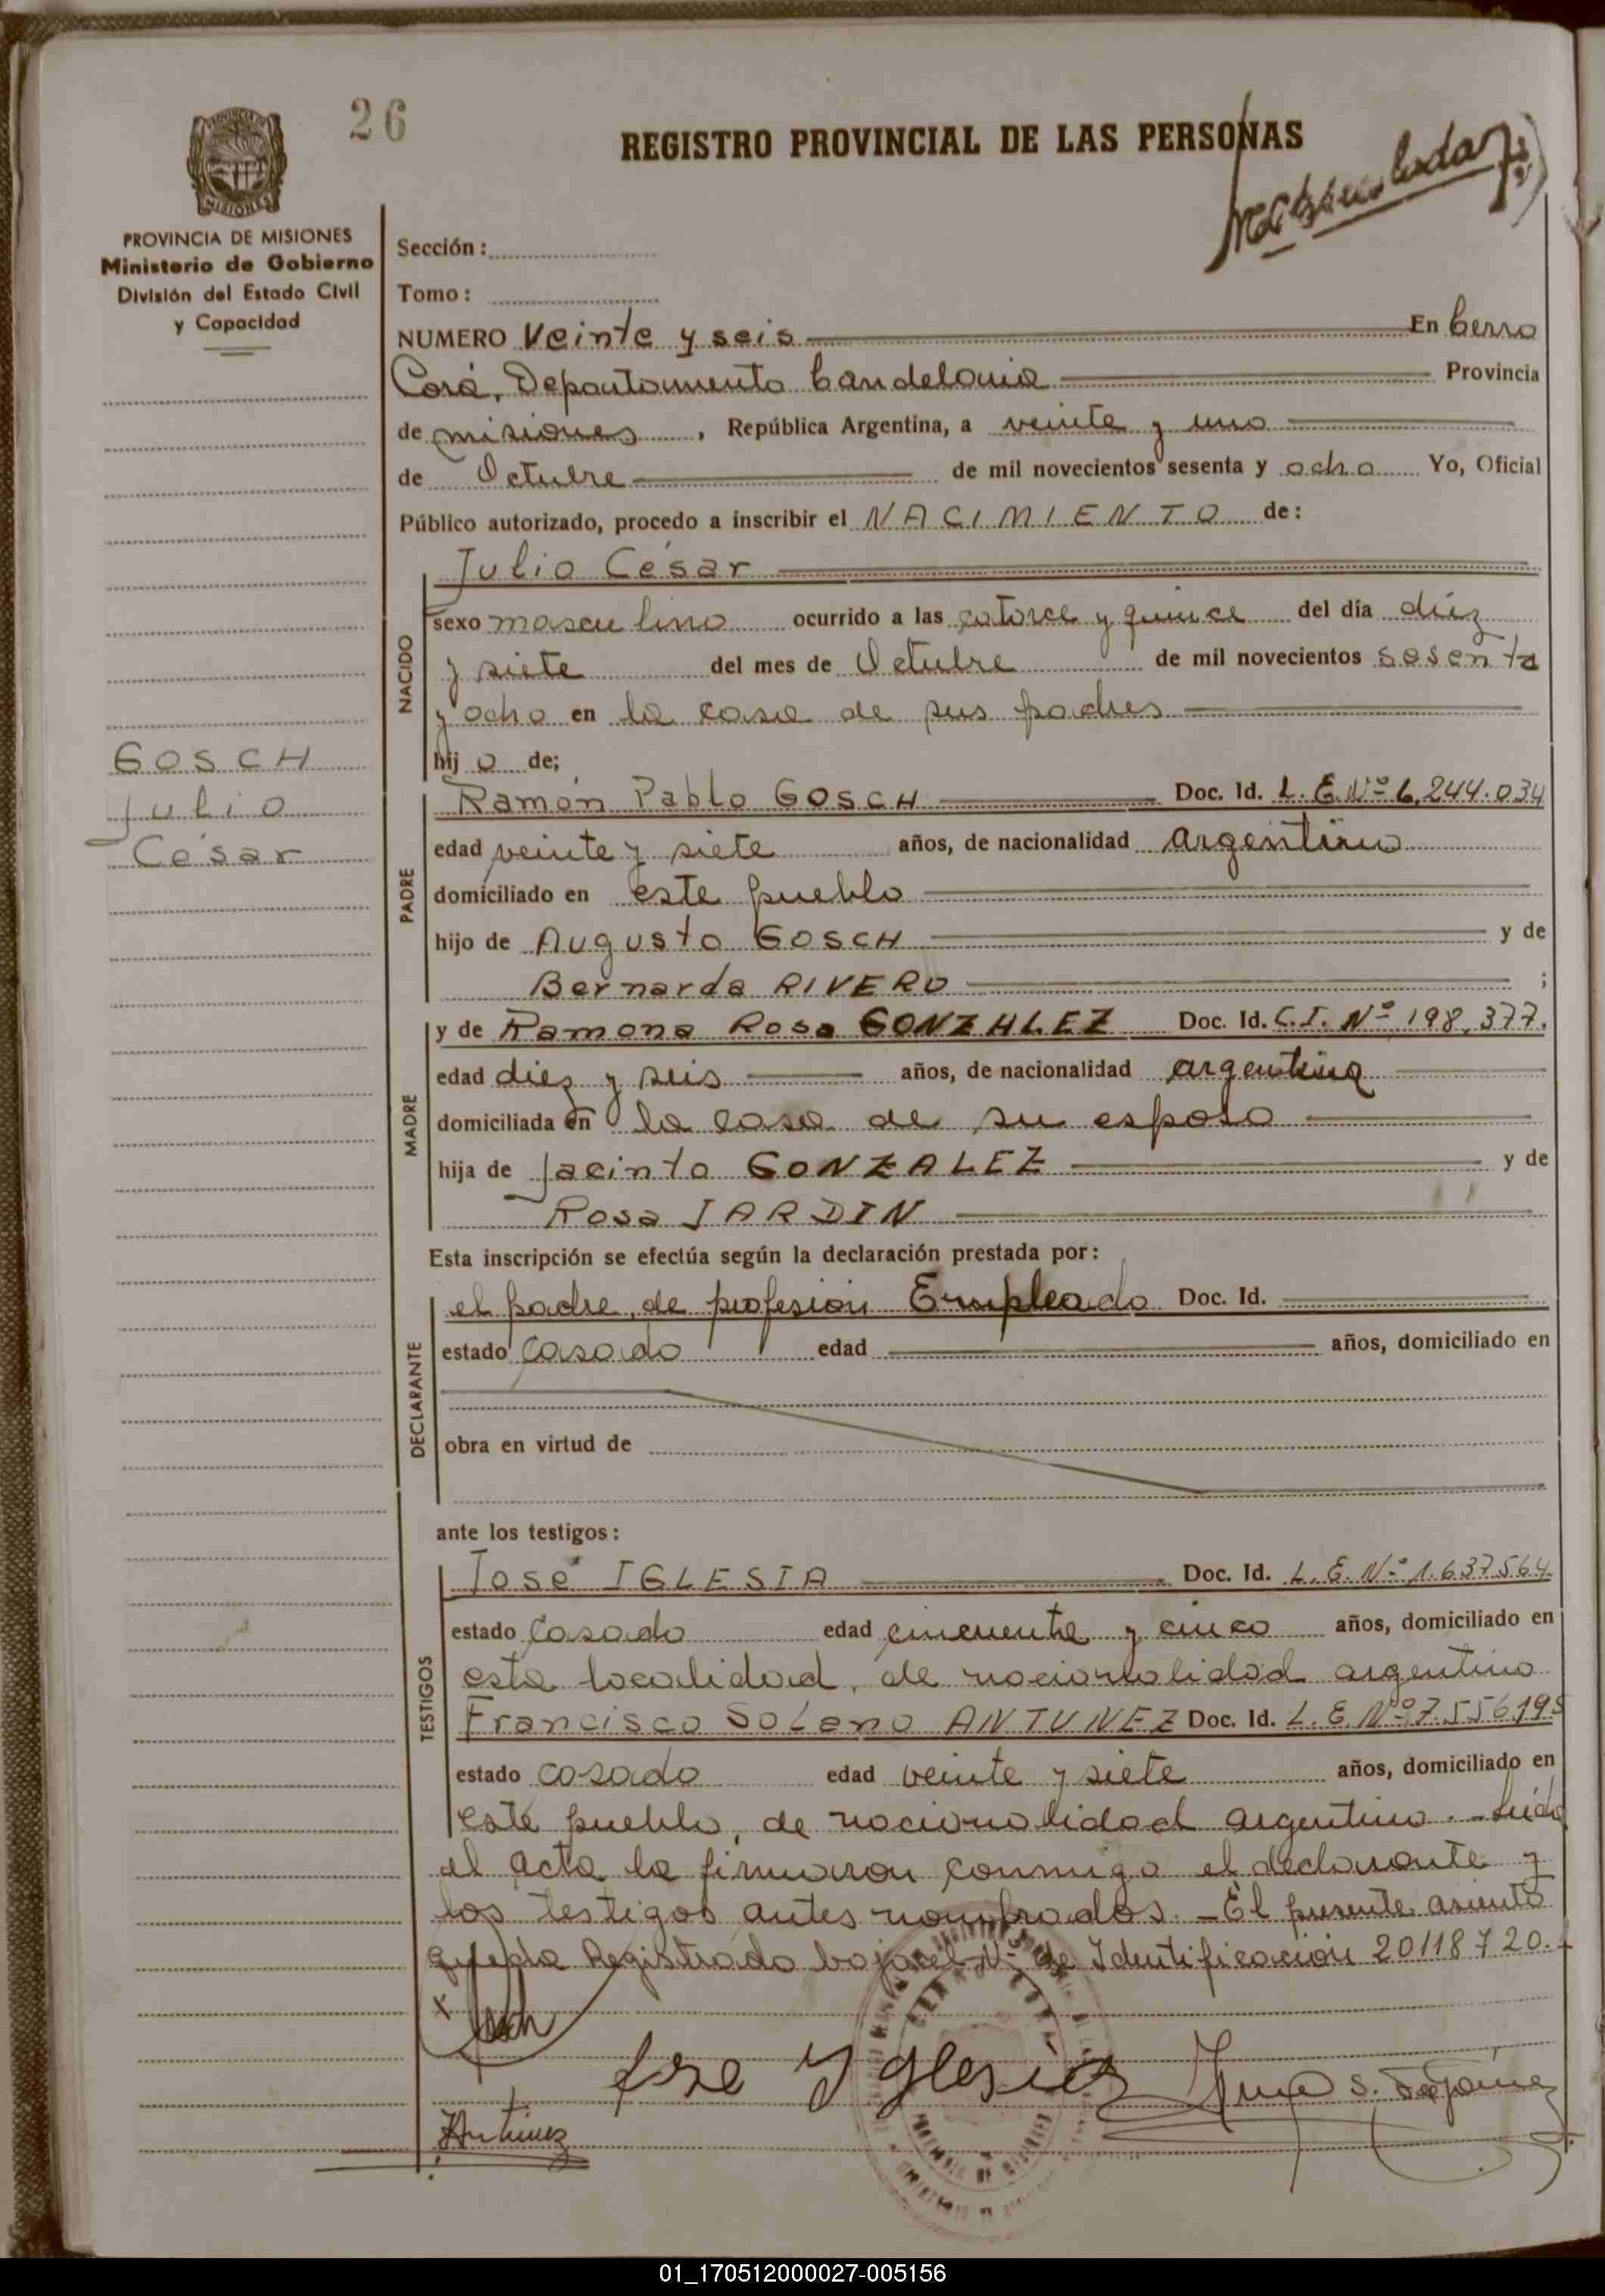 26
REGISTRO PROVINCIAL DE LAS PERSONAS
MISIONES
PROVINCIA DE MISIONES
Ministerio de Gobierno
División del Estado Civil
y Capacidad
Sección :
Tomo :
NUMERO Veinte y seis En Cerro
Corá, Departamento Candelaria Provincia
de misiones, República Argentina, a veinte y uno
de Octubre de mil novecientos sesenta y ocho Yo, Oficial
Público autorizado, procedo a inscribir el NACIMIENTO de :
Julio César
NACIDO
sexo masculino ocurrido a las catorce y quince del día diéz
y siete del mes de Octubre de mil novecientos sesenta
y ocho en la casa de sus padres
hij o de;
GOSCH
Julio
César
PADRE
Ramón Pablo GOSCH Doc. Id. L. E. Nº 6.244.034
edad veinte y siete años, de nacionalidad argentino
domiciliado en este pueblo
hijo de Augusto GOSCH y de
Bernarda RIVERO ;
MADRE
y de Ramona Rosa GONZALEZ Doc. Id. C.I. Nº 198,377.
edad diez y seis años, de nacionalidad argentina
domiciliada en la casa de su esposo
hija de Jacinto GONZALEZ y de
Rosa JARDIN
Esta inscripción se efectúa según la declaración prestada por :
DECLARANTE
el padre, de profesión Empleado Doc. Id.
estado Casado edad años, domiciliado en
obra en virtud de
ante los testigos :
TESTIGOS
José IGLESIA Doc. Id. L. E. Nº 1.637564.
estado Casado edad cincuenta y cinco años, domiciliado en
esta localidad, de nacionalidad argentino
Francisco Solano ANTUNEZ Doc. Id. L. E. Nº 7.556195
estado casado edad veinte y siete años, domiciliado en
este pueblo, de nacionalidad argentino.- Leída
el acta la firmaron conmigo el declarante y
los testigos antes nombrados.- El presente asiento
queda Registrado bajo el Nº de Identificación 20118720.-
Jose Yglesias
Antunez
01_170512000027-005156